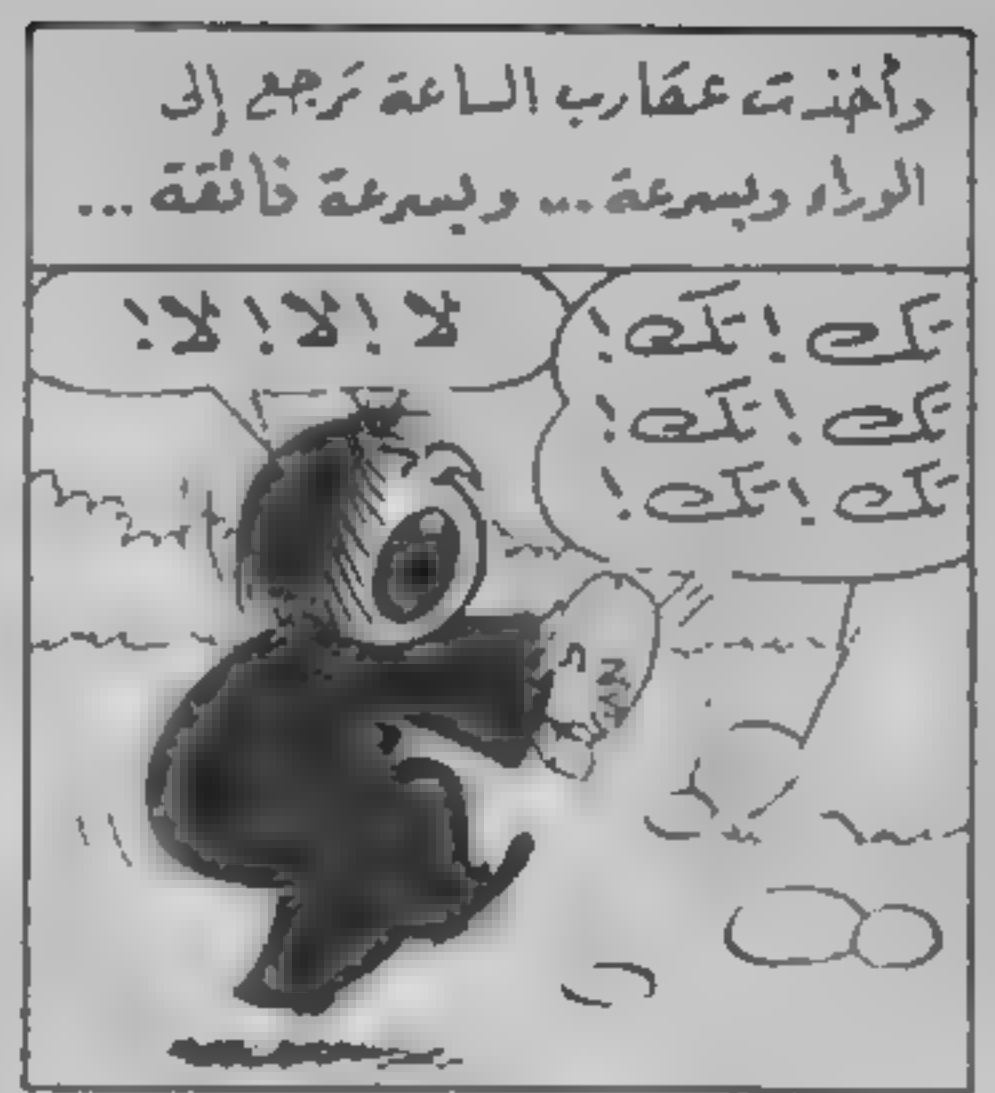 وأخذت عقارب الساعة تَرجع إلى
الوراء وبسرعة ... وبسرعة فائقة ...
تك ! تك !
تك ! تك !
تك ! تك !
لا ! لا ! لا !